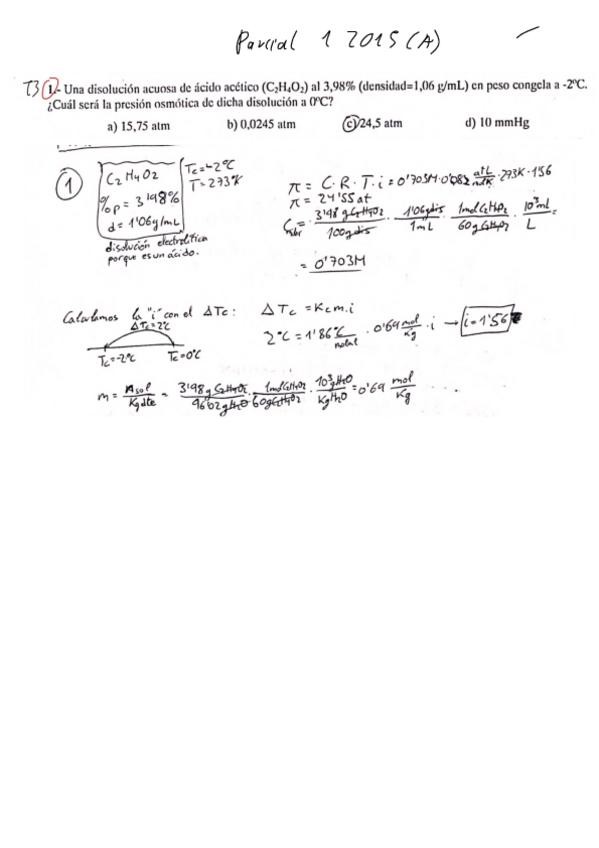 Parcial 1 2015 (A)
T3 1.- Una disolución acuosa de ácido acético (C₂H₄O₂) al 3,98% (densidad=1,06 g/mL) en peso congela a -2ºC.
¿Cuál será la presión osmótica de dicha disolución a 0ºC?
a) 15,75 atm b) 0,0245 atm c) 24,5 atm d) 10 mmHg
1
C₂H₄O₂
%p = 3'98%
d = 1'06g/mL
Tc=-2ºC
T=273K
disolución electrolítica
porque es un ácido.
π = C·R·T·i = 0'703M·0'082 atL/molK ·273K·1'56
π = 24'55at
3'98 g C₂H₄O₂/100g dis · 1'06g dis/1mL · 1mol C₂H₄O₂/60g C₂H₄O₂ · 10³mL/L =
= 0'703M
Calculamos la "i" con el ΔTc:
ΔTc=2ºC
Tc=-2ºC Tc=0ºC
ΔTc = Kc m.i
2ºC = 1'86 ºC/molal · 0'69 mol/Kg · i → i=1'56
m = nsol/Kg dte = 3'98 g C₂H₄O₂/96'02g H₂O · 1mol C₂H₄O₂/60g C₂H₄O₂ · 10³g H₂O/Kg H₂O = 0'69 mol/Kg ...